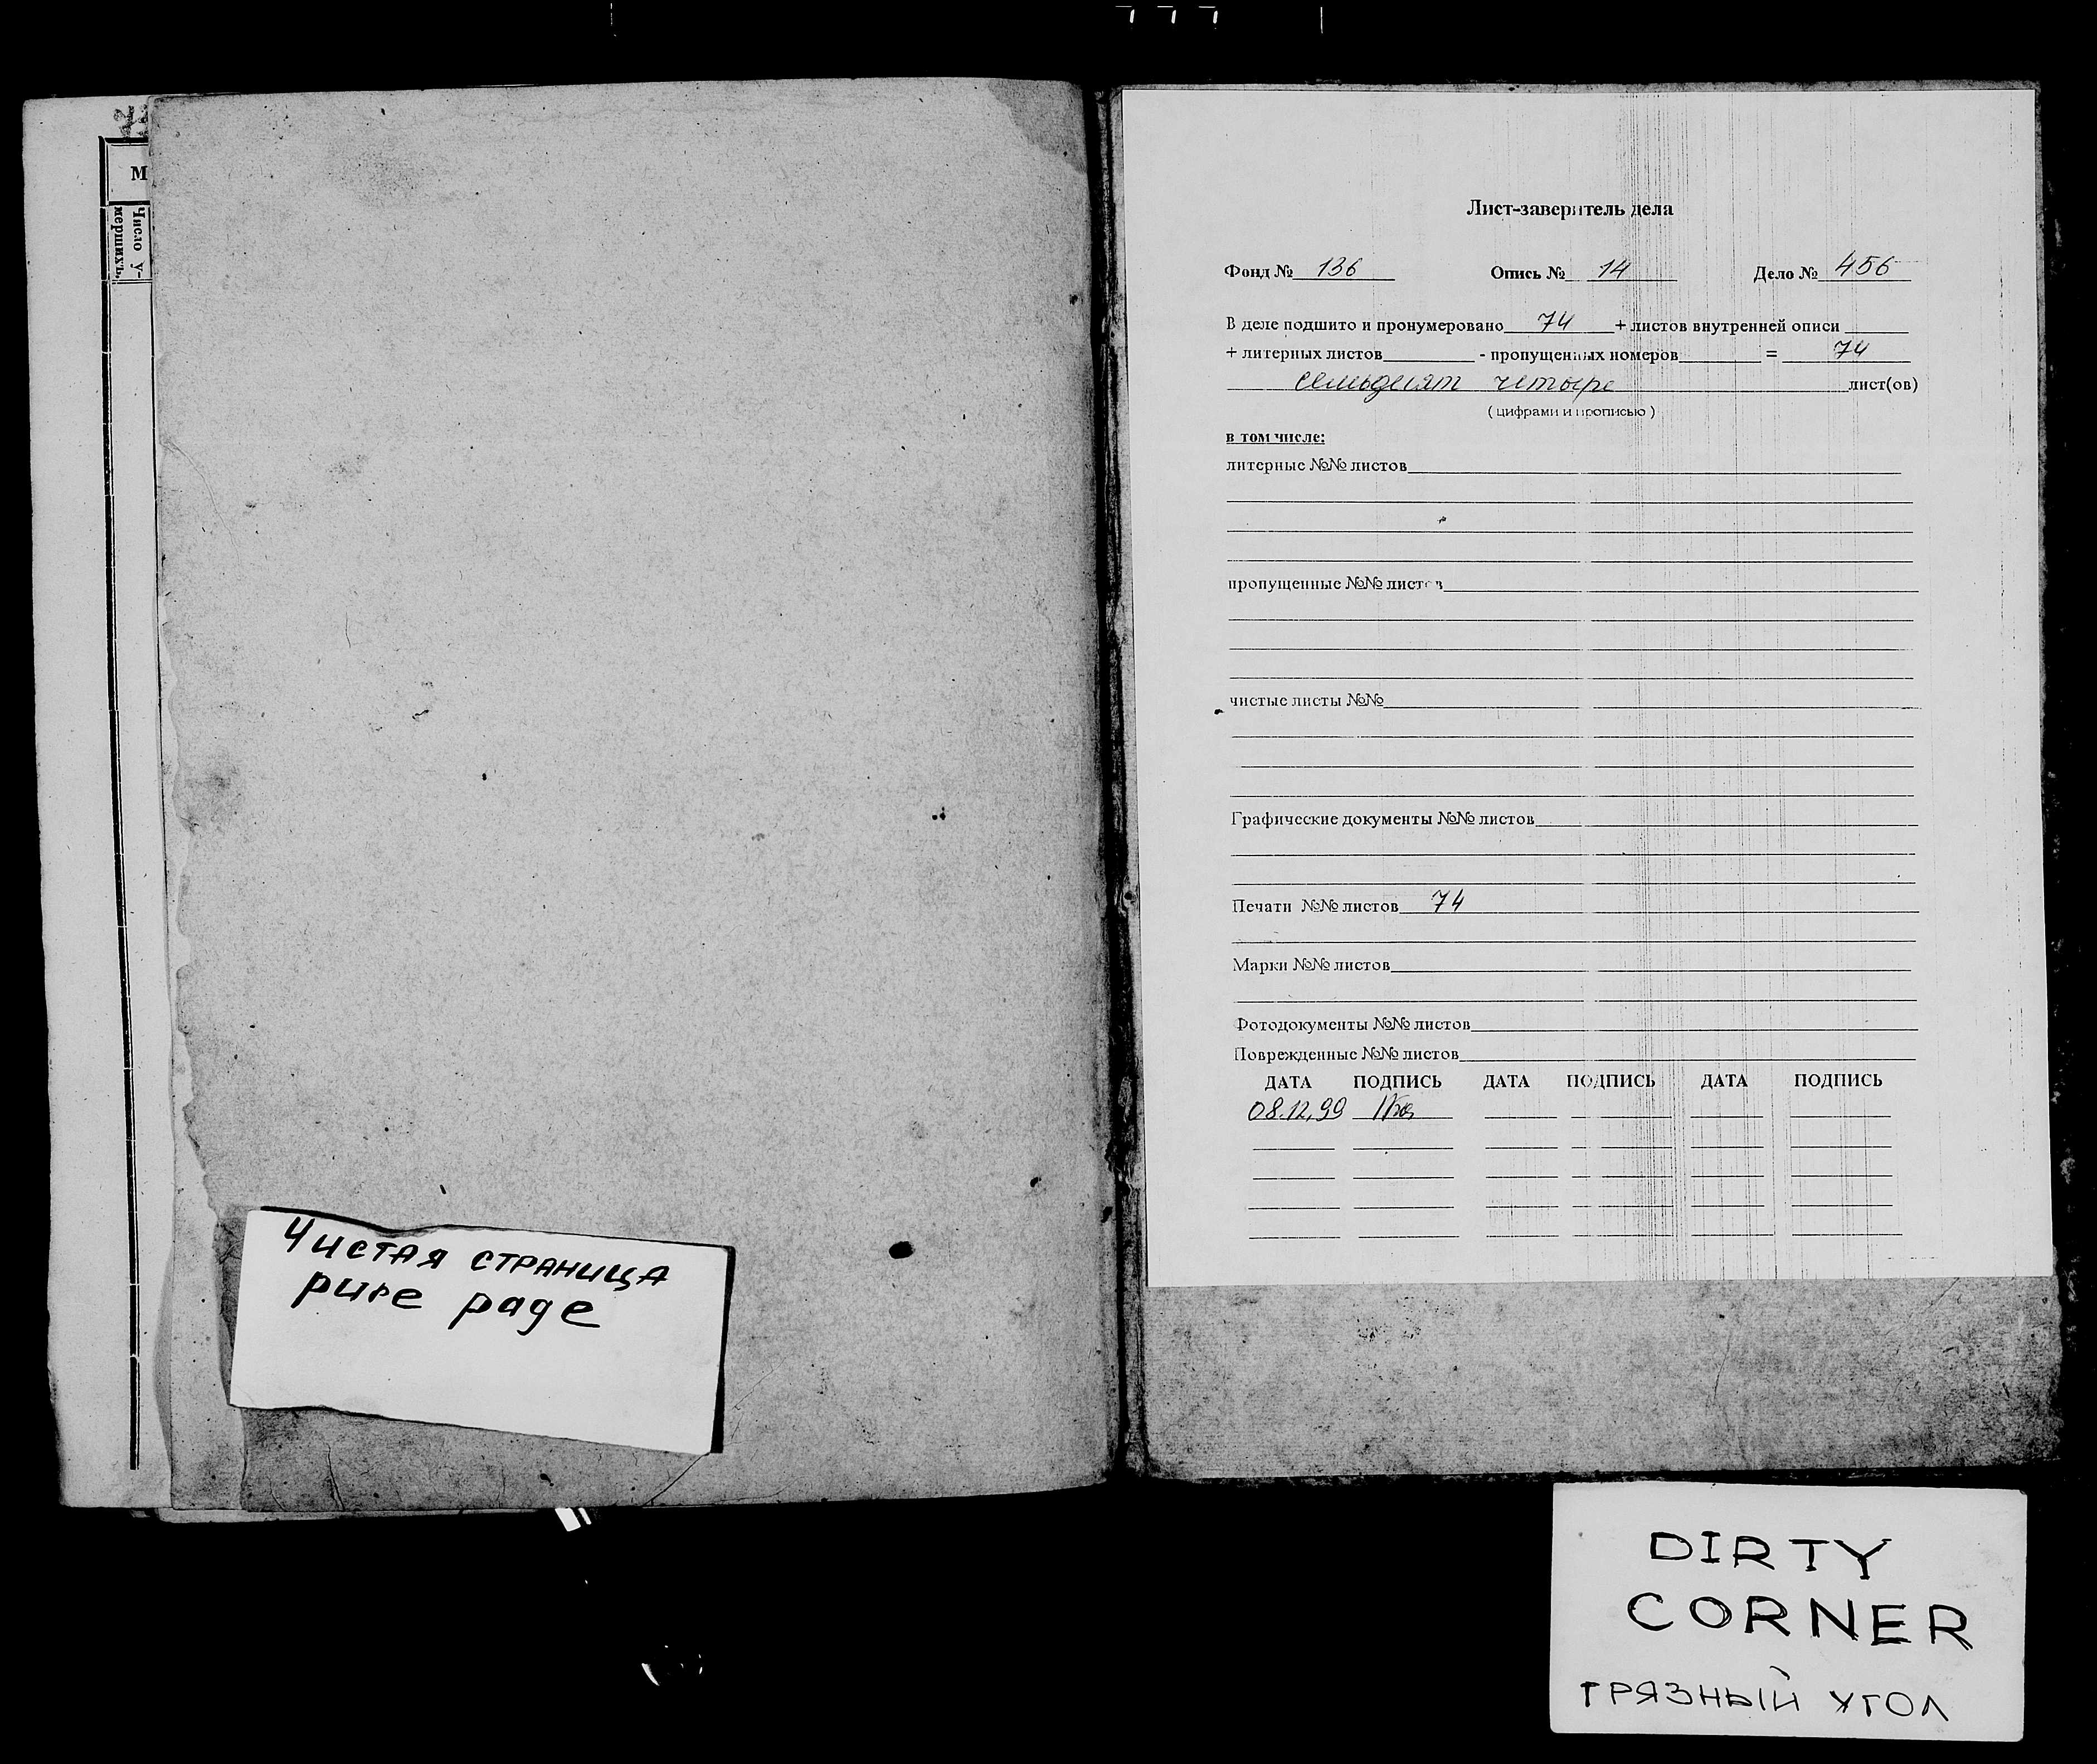 М
Число у-
мершихъ.
Чистая страница
pure page
Лист-заверитель дела
Фонд № 136 Опись № 14 Дело № 456
В деле подшито и пронумеровано 74 + листов внутренней описи
+ литерных листов - пропущенных номеров = 74
семьдесят четыре лист(ов)
( цифрами и прописью )
в том числе:
литерные №№ листов
пропущенные №№ листов
чистые листы №№
Графические документы №№ листов
Печати №№ листов 74
Марки №№ листов
Фотодокументы №№ листов
Поврежденные №№ листов
ДАТА ПОДПИСЬ ДАТА ПОДПИСЬ ДАТА ПОДПИСЬ
08.12.99
DIRTY
CORNER
ГРЯЗНЫЙ УГОЛ